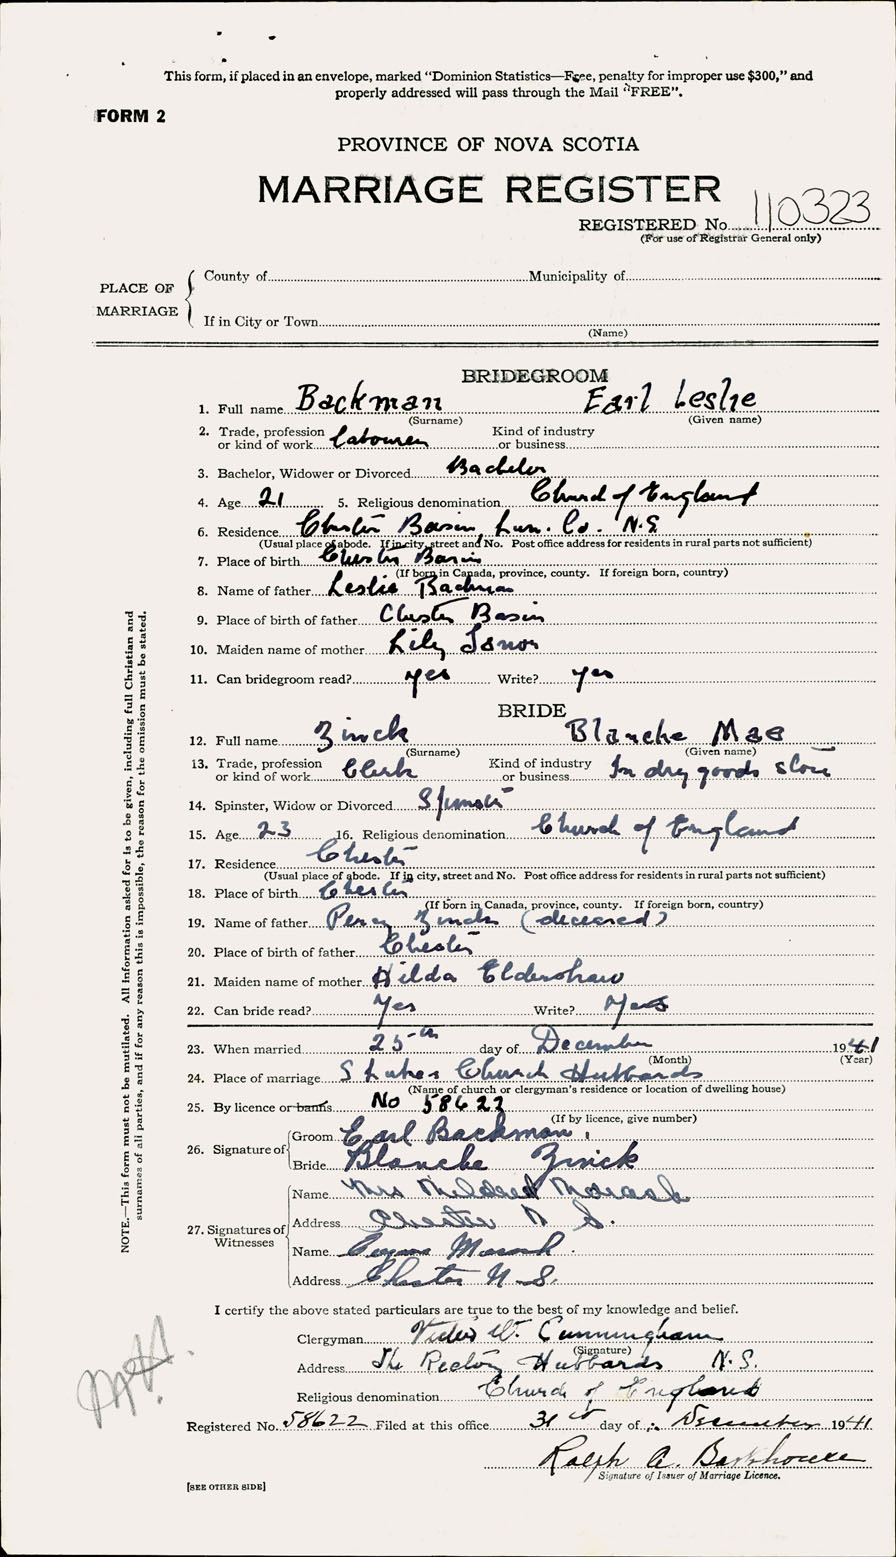 This form, if placed in an envelope, marked “Dominion Statistics—Free, penalty for improper use $300,” and
properly addressed will pass through the Mail “FREE”.
FORM 2
PROVINCE OF NOVA SCOTIA
MARRIAGE REGISTER
REGISTERED No. 110323
(For use of Registrar General only)
PLACE OF MARRIAGE
County of Municipality of
If in City or Town
(Name)
BRIDEGROOM
1. Full name Backman Earl Leslie
(Surname) (Given name)
2. Trade, profession or kind of work Labourer Kind of industry or business
3. Bachelor, Widower or Divorced Bachelor
4. Age 21 5. Religious denomination Church of England
6. Residence Chester Basin, Lun. Co. N.S.
(Usual place of abode. If in city, street and No. Post office address for residents in rural parts not sufficient)
7. Place of birth Chester Basin
(If born in Canada, province, county. If foreign born, country)
8. Name of father Leslie Backman
9. Place of birth of father Chester Basin
10. Maiden name of mother Lily
11. Can bridegroom read? yes Write? yes
BRIDE
12. Full name Zinck Blanche Mae
(Surname) (Given name)
13. Trade, profession or kind of work Clerk Kind of industry or business In dry goods store
14. Spinster, Widow or Divorced Spinster
15. Age 23 16. Religious denomination Church of England
17. Residence Chester
(Usual place of abode. If in city, street and No. Post office address for residents in rural parts not sufficient)
18. Place of birth Chester
(If born in Canada, province, county. If foreign born, country)
19. Name of father Percy Zinck (deceased)
20. Place of birth of father Chester
21. Maiden name of mother Hilda Eldershaw
22. Can bride read? Yes Write? Yes
23. When married 25th day of December 1941
(Month) (Year)
24. Place of marriage St Lukes Church Hubbards
(Name of church or clergyman's residence or location of dwelling house)
25. By licence or banns No 58622
(If by licence, give number)
26. Signature of
Groom Earl Backman.
Bride Blanche Zinck
27. Signatures of Witnesses
Name Mrs Mildred Morash
Address Chester N S.
Name Morash
Address Chester N.S.
I certify the above stated particulars are true to the best of my knowledge and belief.
Clergyman Victor W. Cunningham
(Signature)
Address The Rectory Hubbards N.S.
Religious denomination Church of England
Registered No. 58622 Filed at this office 31st day of December 1941
Ralph A. Barkhouse
Signature of Issuer of Marriage Licence.
[SEE OTHER SIDE]
NOTE.—This form must not be mutilated. All information asked for is to be given, including full Christian and
surnames of all parties, and if for any reason this is impossible, the reason for the omission must be stated.